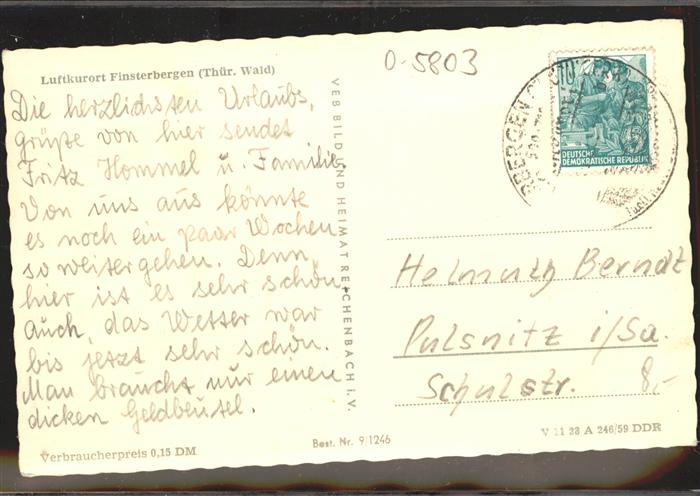 O-5803
Luftkurort Finsterbergen (Thür. Wald)
Die herzlichsten Urlaubs,
grüße von hier sendet
Fritz Hommel u. Familie
Von uns aus könnte
es noch ein paar Wochen
so weitergehen. Denn
hier ist es sehr schön
auch, das Wetter war
bis jetzt sehr schön.
Man braucht nur einen
dicken Geldbeutel.
Verbraucherpreis 0,15 DM
VEB BILD UND HEIMAT REICHENBACH i. V.
Best. Nr. 9/1246
10
DEUTSCHE
DEMOKRATISCHE REPUBLIK
Helmuth Berndt
Pulsnitz i/Sa.
Schulstr. 8,-
V 11 28 A 246/59 DDR